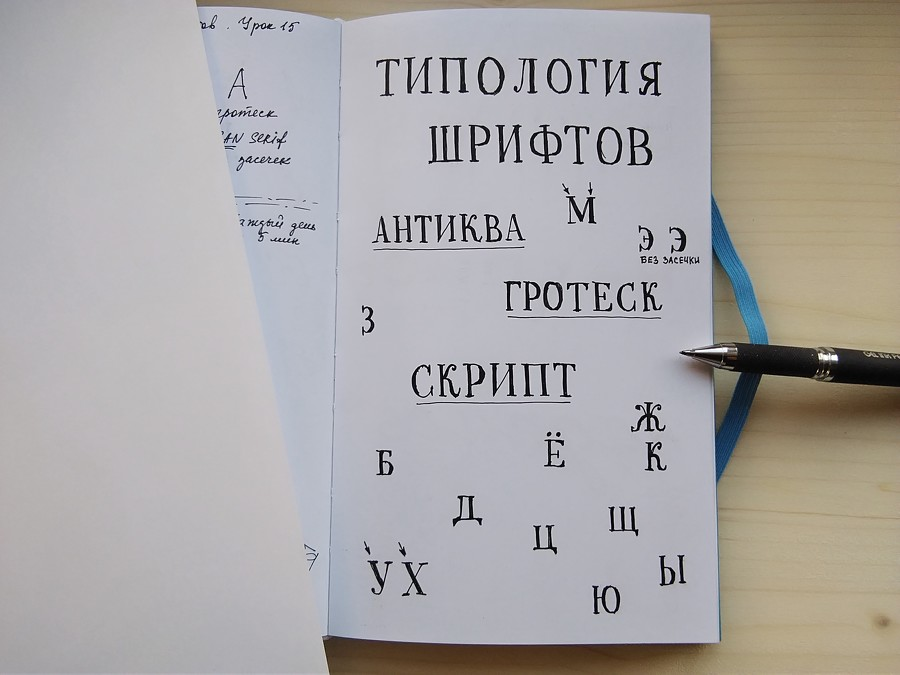 Урок 15
А
гротеск
SERIF
засечек
каждый день
5 мин
ТИПОЛОГИЯ
ШРИФТОВ
М
АНТИКВА
Э Э
БЕЗ ЗАСЕЧКИ
ГРОТЕСК
З
СКРИПТ
Ж
Б Ё К
Д
Ц Щ
У Х
Ы
Ю